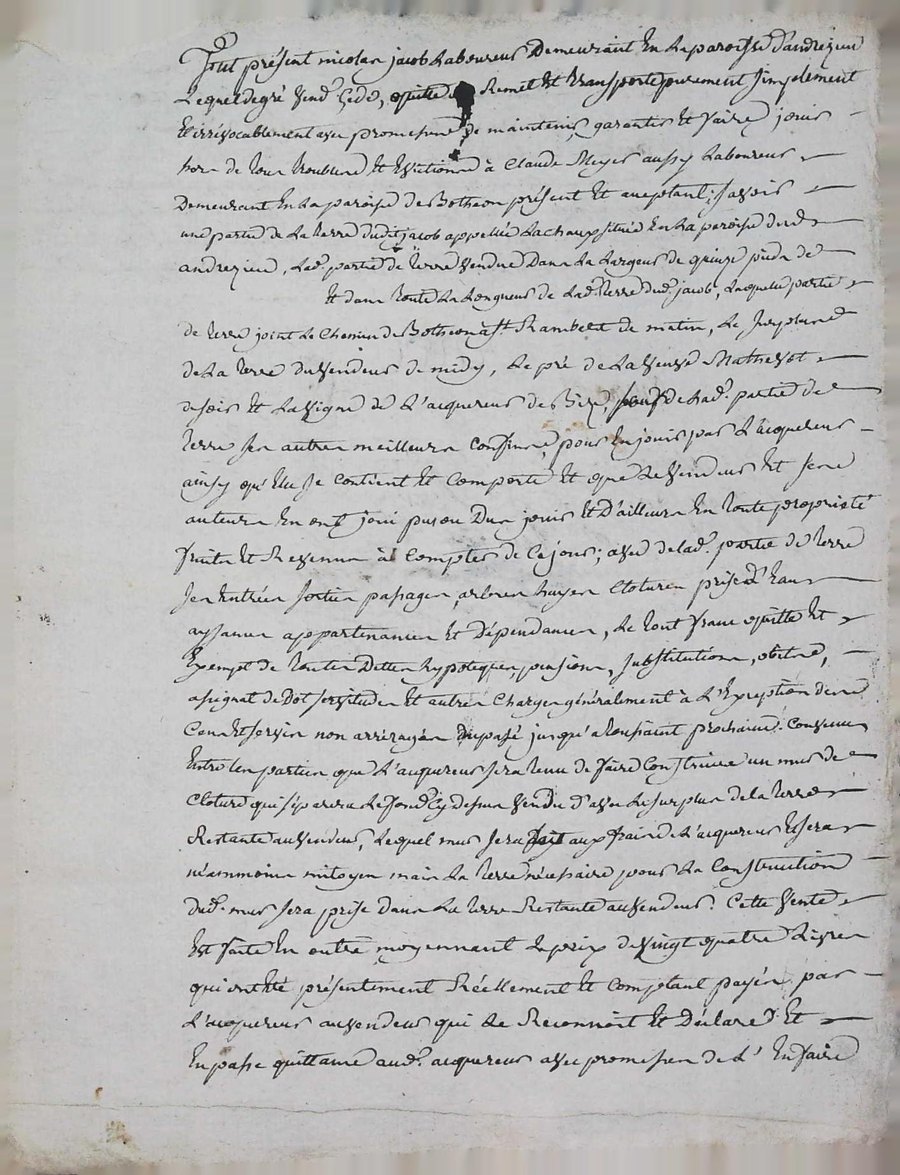 Fut présent nicolas jacob Laboureur Demeurant En La paroisse d'andrezieu
Lequel de gré vend, Cede, quitte Remet Et transporte purement simplement
Et irrévocablement avec promesse de maintenir, garantir Et faire jouir
hors de tous troubles Et Evictions à Claude Meyer aussy Laboureur
Demeurant En La paroisse de Botheon présent Et acceptant; savoir
une partie de La terre dudit jacob appellée La chaux située En La paroisse dud.
andrezieu, Lad. partie de terre vendue Dans La Largeur de quinze pieds de
Et dans toute La Longueur de Lad. terre dud. jacob, Laquelle partie
de terre joint Le Chemin de Botheon a St. Rambert de matin, Le surplus
de La terre du vendeur de midy, Le pré de La veuve Mathevot
de soir Et La vigne de L'acquereur de Bize, sauf de Lad. partie de
terre ses autres meilleurs Confins, pour En jouir par L'acquereur
ainsy qu'Elle se Contient Et Comporte Et que Le vendeur Et ses
auteurs En ont joui pu ou Du jouir Et D'ailleurs En toute propriété
fruits Et Revenus à Compter de Ce jour; avec de lad. partie de terre
ses Entrées sorties passages, arbres hayes Clotures prises d'Eau
aysances appartenances Et Dépendances, Le tout franc quitte Et
Exempt de toutes Dettes hypoteques, pensions, substitutions,
assignat de Dot servitudes Et autres Charges généralement à L'Exception des
Cens Et servis non arréragés du passé jusqu'a toussaint prochaine. Convenu
Entre les parties que L'acquereur sera tenu de faire Construire un mur de
Cloture qui séparera Le fond Cy dessus vendu d'avec Le surplus de la terre
Restante au vendeur, Lequel mur sera fait aux frais de L'acquereur Et sera
néammoins mitoyen mais La terre nécessaire pour La Construction
dud. mur sera prise dans La terre Restante au vendeur. Cette vente
Est faite En outre moyennant Le prix de vingt quatre Livres
qui ont Eté présentement Réellement Et Comptant payés par
L'acquereur au vendeur qui Le Reconnoit Et Déclare Et
En passe quittance aud. acquereur avec promesses de L' En faire